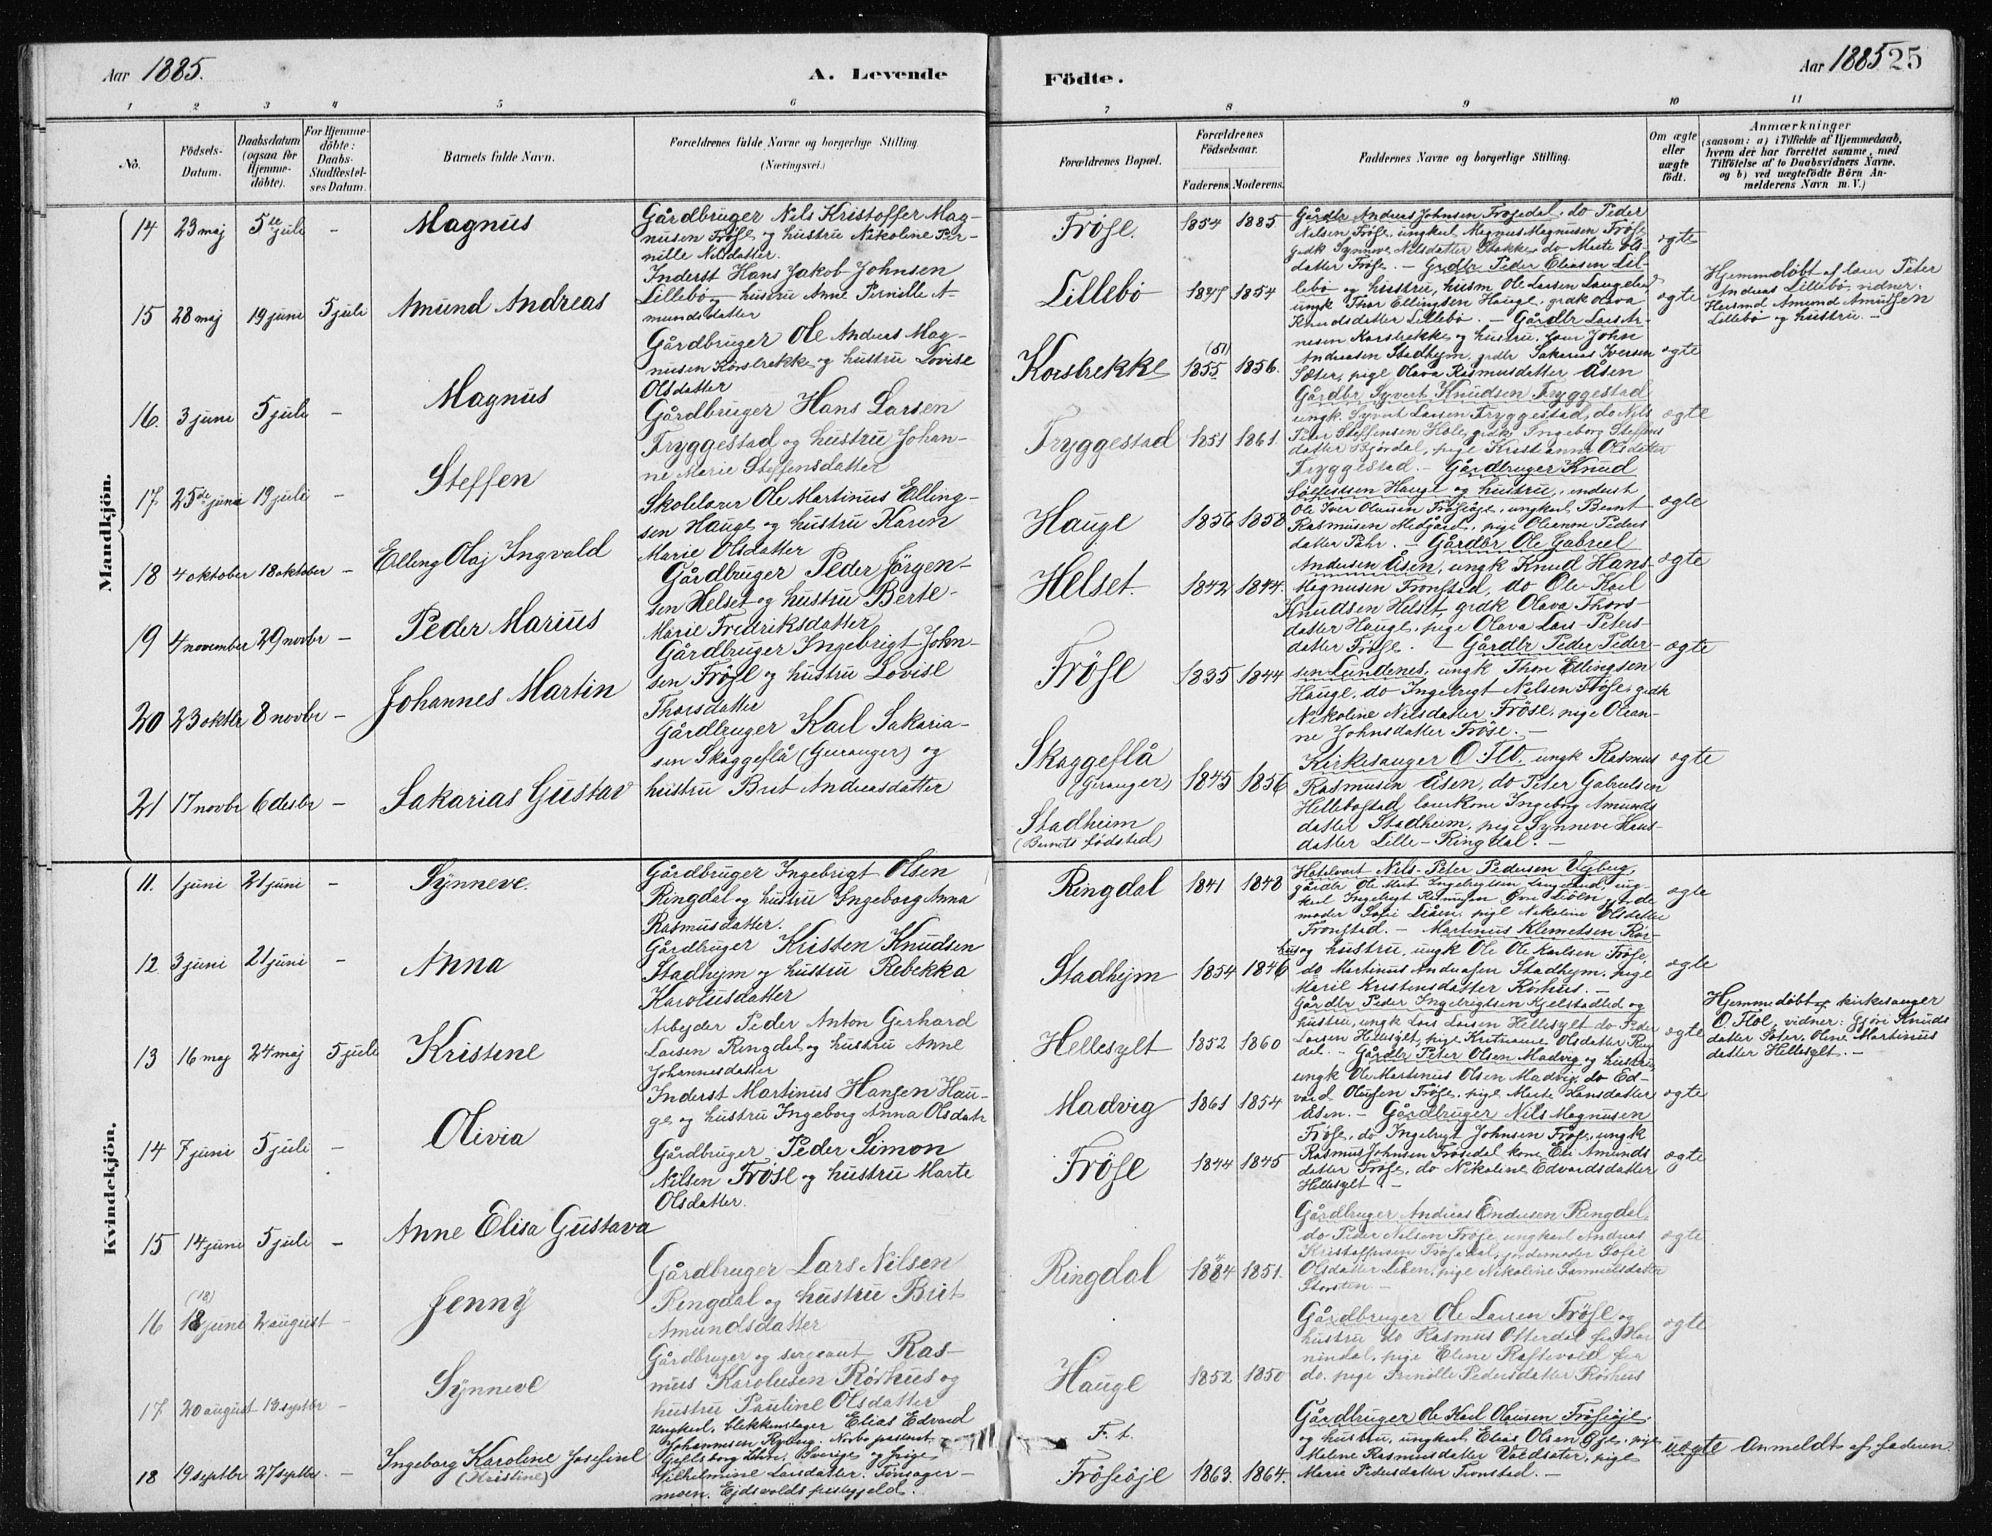 Aar 1885.
A. Levende
Födte.
Aar 1885
25
1 2 3 4 5 6 7 8 9 10 11
No.
Födsels-Datum.
Daabsdatum (ogsaa for Hjemme-döbte).
For Hjemme-döbte: Daabs-Stadfæstel-ses Datum.
Barnets fulde Navn.
Forældrenes fulde Navne og borgerlige Stilling
(Næringsvei.)
Forældrenes Bopæl.
Forældrenes Födselsaar.
Faderens. Moderens.
Faddernes Navne og borgerlige Stilling.
Om ægte eller uægte födt.
Anmærkninger
(saasom: a) i Tilfælde af Hjemmedaab,
hvem der har forrettet samme, med
Tilföielse af to Daabsvidners Navne.
og b) ved uægtefödte Börn An-
melderens Navn m. V.)
Mandkjön.
14 23 maj 5te juli - Magnus
Gårdbruger Nils Kristoffer Mag-
nusen Fröse og hustru Nikoline Per-
nille Nilsdatter.
Fröse. 1854 1885.
Gårdbr Andreas Johnsen Frösedal, do Peder
Nilsen Fröse, ungkarl Magnus Magnusen Fröse
grdk Synneve Nilsdatter Stokke do Marte Ols-
datter Fröse. -
ægte
15 28 maj 19 juni 5 juli Amund Andreas
Inderst Hans Jakob Johnsen
Lillebö - hustru Anne Pernille A-
mundsdatter
Lillebö 1854
Grdbr Peder Eliasen Lil-
lebö og hustru, husm Ole Larsen
ungk Thor Ellingsen Hauge, grdk Olava
Knudsdatter Lillebö. -
ægte
Hjemmedöbt af lærer Peter
Andreas Lillebö, vidner:
Husmd Amund Amundsen
Lillebö og hustru. -
16. 3 juni 5 juli - Magnus
Gårdbruger Ole Andreas Mag-
nusen Korsbrekke og hustru Lovise
Olsdatter
Korsbrekke 1855 1856.
Gårdbr Lars Ar-
nesen Korsbrekke og hustru, lærer John
Andreasen Stadhejm, grdbr Sakarias Iversen
Sæter, pige Olava Rasmusdatter Åsen
ægte
17 25de juni 19 juli - Steffen
Gårdbruger Hans Larsen
Tryggestad og hustru Johan-
ne Marie Steffensdatter
Tryggestad 1851 1861.
Gårdbr Syvert Knudsen Tryggestad
ungk Syvert Larsen Tryggestad, do Nils
Peter Steffensen Hole, grdk Ingeborg Steffens
datter Bjørdal, pige Kristianne Olsdatter
Tryggestad. -
ægte
18 4 oktober 18 oktober - Elling Olaj Ingvald
Skolelærer Ole Martinus Elling-
sen Hauge og hustru Karen
Marie Olsdatter
Hauge 1856 1858
Gårdbruger Knud
Hauge og hustru, inderst
Ole Iver Olausen Frösöje, ungkarl Bernt
Rasmusen Medgård, pige Oleanna Peders
datter
ægte
19 4 november 29 novbr - Peder Marius
Gårdbruger Peder Jörgen-
sen Helset og hustru Berte
Marie Fredriksdatter
Helset. 1842 1844.
Gårdbr Ole Gabriel
Andersen Åsen, ungk Knud Hans
Magnusen Tronstad, do Ole Karl
Knudsen Helset grdk Olava Thors-
datter Hauge, pige Olava Lars Peters-
datter Fröse. -
ægte
20 23 oktbr 8 novbr - Johannes Martin
Gårdbruger Ingebrigt John-
sen Fröse og hustru Lovise
Thorsdatter
Fröse 1835 1844
Gårdbr Peder Peder-
sen Lundenes, ungk Thor Ellingsen
Hauge, do Ingebrigt Nilsen Fröse, grdk
Nikoline Nilsdatter Fröse, pige Olian-
ne Johnsdatter Fröse. -
ægte
21 17 novbr 6 desbr - Sakarias Gustav
Gårdbruger Karl Sakaria-
sen Skaggeflå (Geiranger) og
hustru Brit Andreasdatter
Skaggeflå
(Geiranger)
1845 1856
Stadheim
(Barnets födsted)
Kirkesanger O. Flö. ungk Rasmus
Rasmusen Åsen, do Peter Gabrielsen
Hellebostad, lærerkone Ingeborg Amunds
datter Stadheim, pige Synneve Hans-
datter Lille-Ringdal. -
ægte
Kvindekjön.
11. 1 juni 21 juni - Synneve.
Gårdbruger Ingebrigt Olsen
Ringdal og hustru Ingeborg Anna
Rasmusdatter.
Ringdal 1841 1848
Hotelvert Nils Peter Pedersen
gårdbr Ole Ingebrigtsen ung-
karl Ingebrigt Rasmusen jorde
moder Sofie pige Nikoline Olsdatter
Tronstad. -
ægte
12. 3 juni 21 juni - Anna
Gårdbruger Kristen Knudsen
Stadhejm og hustru Rebekka
Karolusdatter
Stadhejm 1854 1846
Martinus Klemetsen Rør-
hus og hustru, ungk Ole Ole Karlsen Fröse,
do Martinus Andreasen Stadhejm, pige
Marie Kristensdatter Rörhus. -
ægte
13 16 maj 24 maj 5 juli Kristine
Arbejder Peder Anton Gerhard
Larsen Ringdal og hustru Anne
Johannesdatter
Hellesylt 1852 1860
Gårdbr Peder Ingebrigtsen Kjelstadlid og
hustru, ungk Lars Larsen Hellesylt do Peder
Larsen Hellesylt, pige Kristianne Olsdatter Ring
dal. -
ægte
Hjemmedöbt af kirkesanger
O. Flöe, vidner: Gjöri Knuds
datter Sæter, Oline Martinus
datter Hellesylt. -
14 7 juni 5 juli - Olivia
Inderst Martinus Hansen Hau-
ge og hustru Ingeborg Anna Olsdatr
Madvig 1861 1854
Gårdbr Peter Olsen Madvig og hustru
ungk Ole Martinus Olsen Madvig, do Ed-
vard Olausen Fröse, pige Marte Hansdatter
Åsen. -
ægte
15 14 juni 5 juli - Anne Elisa Gustava
Gårdbruger Peder Simon
Nilsen Fröse og hustru Marte
Olsdatter.
Fröse 1844 1845
Gårdbruger Nils Magnusen
Fröse, do Ingebrigt Johnsen Fröse, ungk
Rasmus Johnsen Frösedal kone Eli Amunds
datter Fröse, do Nikoline Edvardsdatter
Hellesylt -
ægte
16 (18) 18 juni 2 august - Jenny
Gårdbruger Lars Nilsen
Ringdal og hustru Brit
Amundsdatter
Ringdal 1851.
Gårdbruger Andreas Endresen Ringdal,
do Peder Nilsen Fröse, ungkarl Andreas
Kristoffersen Frösedal, jordemoder Sofie
Olsdatter Liåen, pige Nikoline Samuelsdatter
-
ægte
17 20 august 13 septbr - Synneve
Gårdbruger og sergeant Ras-
mus Karolusen Rörhus og
hustru Pauline Olsdatter
Hauge 1852 1850
Gårdbruger Ole Larsen Fröse og
hustru do Rasmus Otterdal fra Hor
nindal, pige Eline Raftevold fra
do. pige Pernille Pedersdatter Rörhus
ægte
18 19 septbr 27 septbr. - Ingeborg Karoline Josefine
(Kristine)
Ungkarl, blikkenslager Elias Edvard
Johannesen Ryberg, Norbo pastorat
Gefleborg Län, Sverige og pige
Vilhelmine Larsdatter. Tønsager-
moen. Ejdsvolds prestegjeld.
F. t.
Frösöje 1863. 1864.
Gårdbruger Ole Karl Olausen Frösöje
og hustru, ungkarl Elias Olsen Øje, pige
Malene Rasmusdatter Voldsæter, pige
Marie Pedersdatter Tronstad. -
uægte Anmeldt af faderen